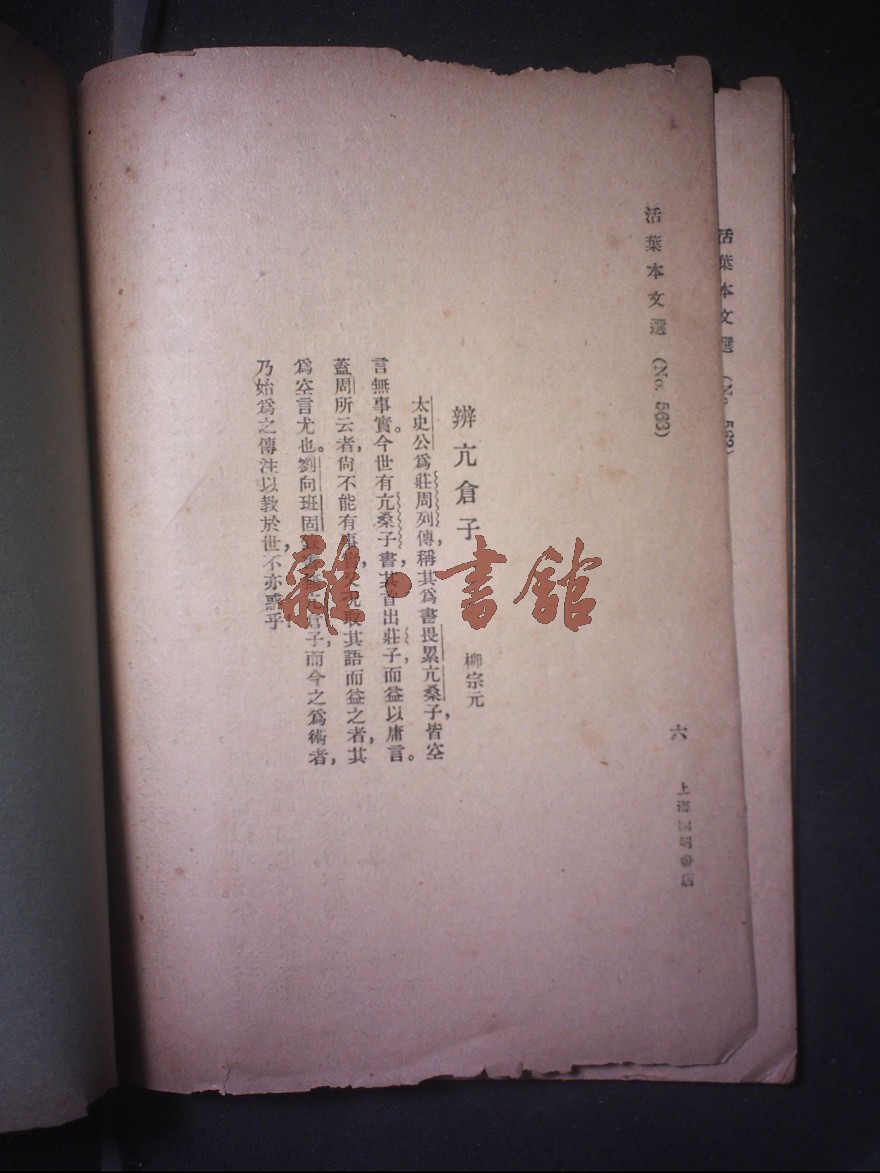 活葉本文選 (No. 563)
六
上海開明書店
辨亢倉子
柳宗元
太史公爲莊周列傳，稱其爲書畏累亢桑子，皆空
言無事實。今世有亢桑子書，其首出莊子，而益以庸言。
蓋周所云者，尙不能有事實，又況取其語而益之者，其
爲空言尤也。劉向班固錄書無亢倉子，而今之爲術者，
乃始爲之傳注，以教於世，不亦惑乎！
雜·書館
活葉本文選 (No.